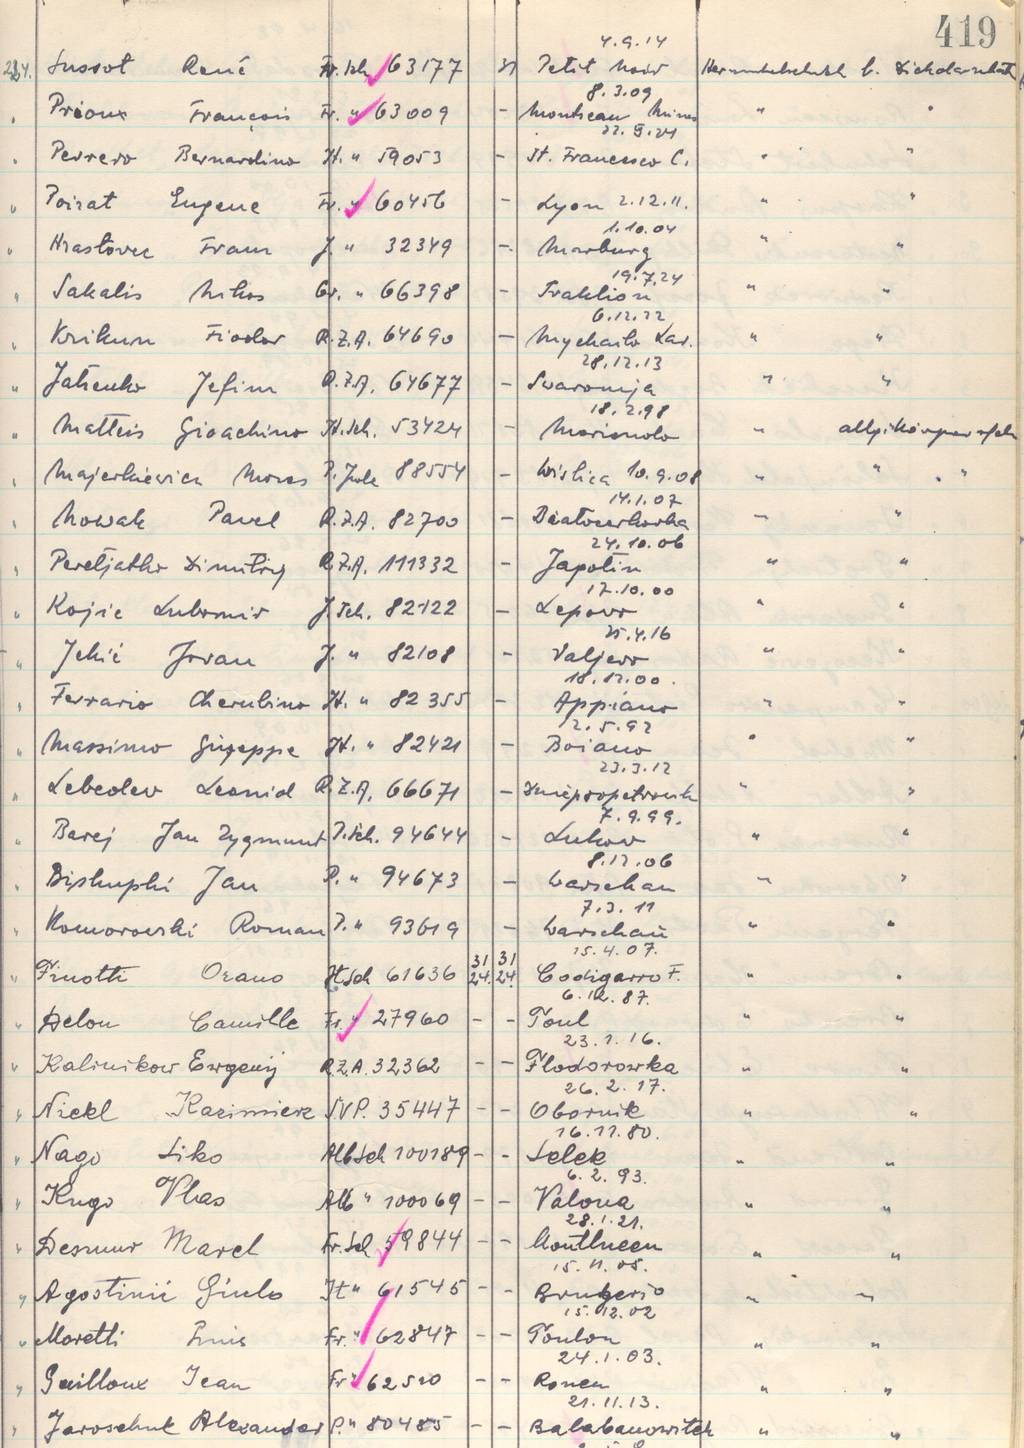 419
4.9.14
Sussot René Fr. Sch 63177 Petit Noir
8.3.09
" Prioux François Fr. " 63009 - Montceau Mines " "
" Perrero Bernardino It. " 59053 - St. Francesco C. " "
" Poizat Eugene Fr. " 60456 - Lyon 2.12.11. " "
1.10.04
" Hrastovec Franz J. " 32349 - Marburg " "
19.7.24
" Sakalis Nikos Gr. " 66398 - Iraklion " "
6.12.22
" Krikun Fiodor R.Z.A. 64690 - Mychailo Lar. " "
28.12.13
" Jatzenko Jefim R.Z.A. 64677 - Swaromja " "
18.2.98
" Matteis Gioachino It. Sch. 53424 - "
" Majerkiewicz Moses P. Jude 88554 - Wislica 10.9.08 " " "
14.1.07
" Nowak Pavel R.Z.A. 82700 - " "
24.10.06
" Peretjatko Dimitrij R.Z.A. 111332 - Japotin " "
17.10.00
" Kojic Lubomir J. Sch. 82122 - Lepovo " "
25.4.16
" Jekić Jovan J. " 82108 - Valjevo " "
18.12.00.
" Ferrario Cherubino It. " 82355 - Appiano " "
2.5.92
" Massimo Giuseppe It. " 82421 - Boiano " "
23.3.12
" Lebedew Leonid R.Z.A. 66671 - Dniepropetrowsk " "
7.9.99.
" Barej Jan Zygmunt P. Sch. 94644 - Lukow " "
8.12.06
" Biskupski Jan P. " 94673 - Warschau " "
7.3.11
" Komorowski Roman P. " 93619 - Warschau " "
15.4.07.
" Finotti Orano It Sch 61636 31 24. 31 24. Codigorro F. " "
6.12.87.
" Delon Camille Fr. " 27960 - - Toul " "
23.1.16.
" Kalinikow Ewgenij R.Z.A. 32362 - - Flodorowka " "
26.2.17.
" Nickl Kazimierz SVP. 35447 - - Obornik " "
16.11.80.
" Nago Liko Alb Sch 100189 - - Selek " "
6.2.93.
" Kugo Vlas Alb " 100069 - - Valona " "
28.1.21.
" Desmur Marcel Fr. Sch 59844 - - Montlucen " "
15.11.05.
" Agostinii Giulo It " 61545 - - Brugerio " "
15.12.02
" Moretti Louis Fr. " 62847 - - Toulon " "
24.1.03.
" Guilloux Jean Fr " 62520 - - Rouen " "
21.11.13.
" Jaroschuk Alexander P. " 80485 - - Balabanowitch " "